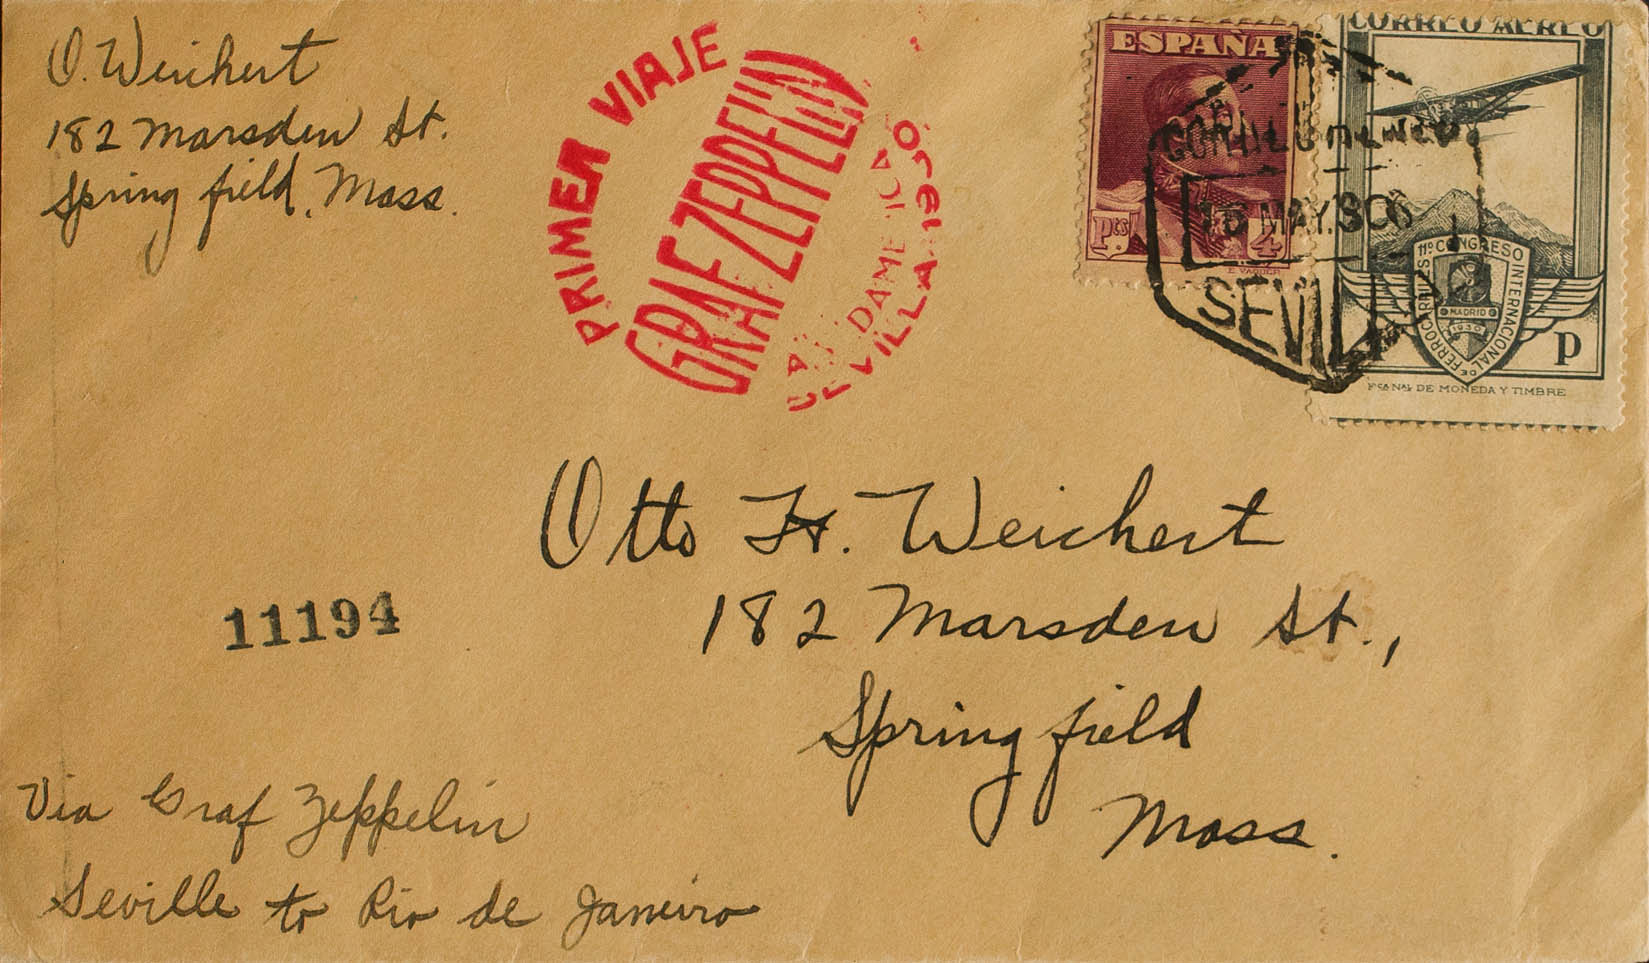 O. Weichert
182 Marsden St.
Springfield, Mass.
PRIMER VIAJE
GRAF ZEPPELIN
SEVILLA
ESPAÑA
Pts.
4
E. VAQUER
CORREO AEREO
11º CONGRESO INTERNACIONAL DE FERROCARRILES
MADRID
1930
P
DE MONEDA Y TIMBRE
MAY.30
SEVILL
Otto H. Weichert
182 Marsden St.,
Springfield
Mass.
11194
Via Graf Zeppelin
Seville to Rio de Janeiro